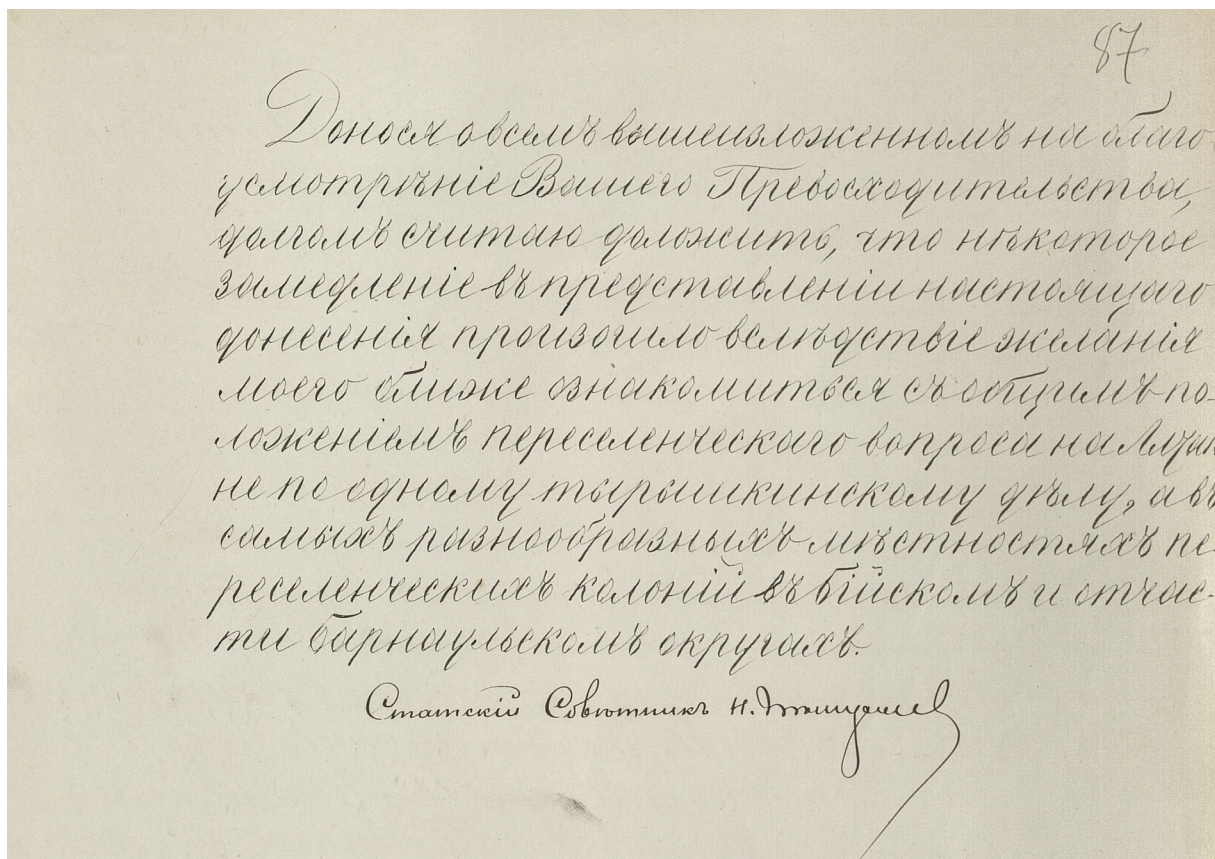 87
Донося о всемъ вышеизложенномъ на благо-
усмотрѣніе Вашего Превосходительства,
долгомъ считаю доложить, что нѣкоторое
замедленіе въ представленіи настоящаго
донесенія произошло вслѣдствіе желанія
моего ближе ознакомиться съ общимъ по-
ложеніемъ переселенческаго вопроса на Алтаѣ
не по одному тырышкинскому дѣлу, а въ
самыхъ разнообразныхъ мѣстностяхъ пе-
реселенческихъ колоній въ бійскомъ и отчас-
ти барнаульскомъ округахъ.
Статскій Совѣтникъ Н.